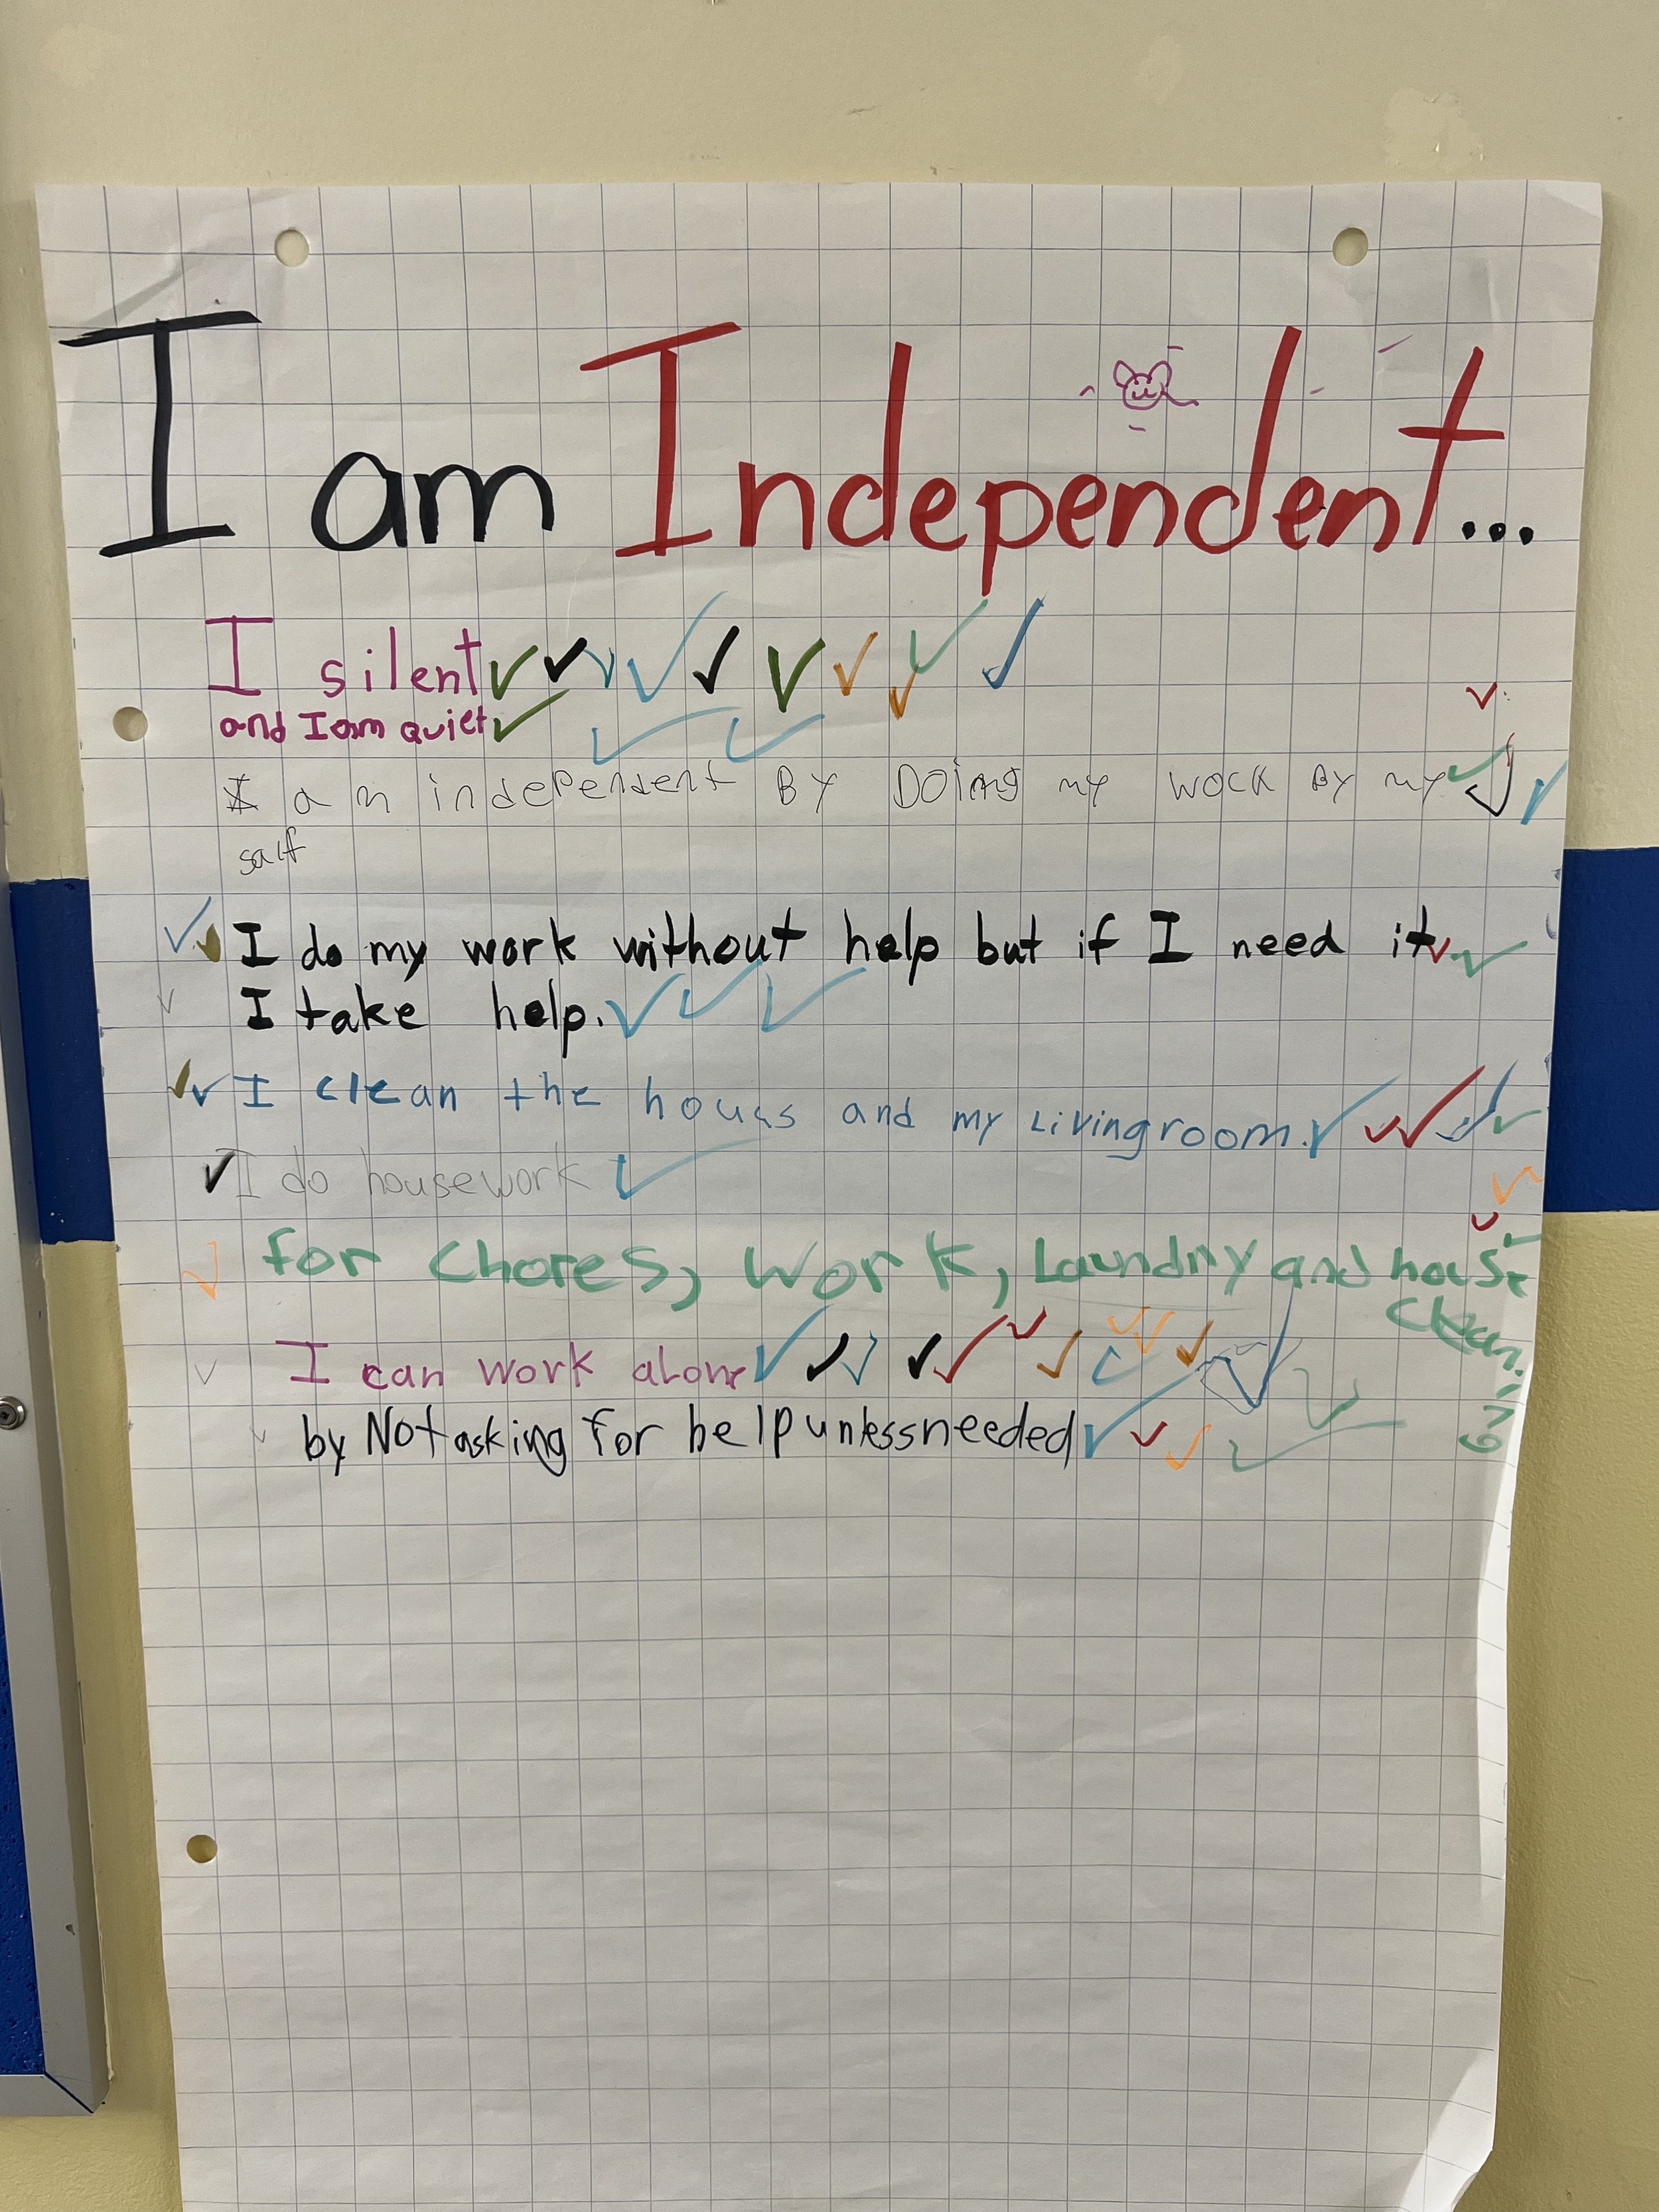 I am Independent...
I silent
and I am quiet
I am independent By Doing my work By my
salf
I do my work without help but if I need it
I take help.
I clean the houes and my Livingroom.
I do housework
for Chores, Work, Laundry and house
cleaning
I can work alone
by Not asking for help unless needed